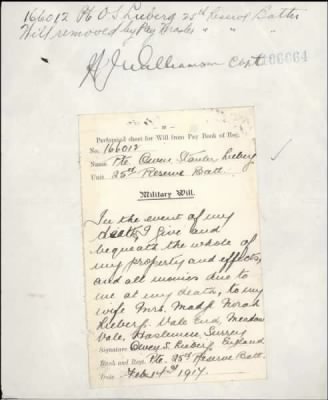 166012 Pte O S Lieberg 25th Reserve Battn
Will removed by Pay Master " " "
H J Williamson Capt
166664
Perforated sheet for Will from Pay Book of Reg.
No. 166012
Name Pte. Owen Stanley Lieberg
Unit 25th Reserve Batt.
Military Will.
In the event of my
death, I give and
bequeath the whole of
my property and effects,
and all monies due to
me at my death, to my
wife Mrs. Norah
Lieberg. Vale End, Meadow
Vale, Haslemere, Surrey
Signature Owen S. Lieberg England
Rank and Regt. Pte. 25th Reserve Batt.
Date Feb 14th 1917.